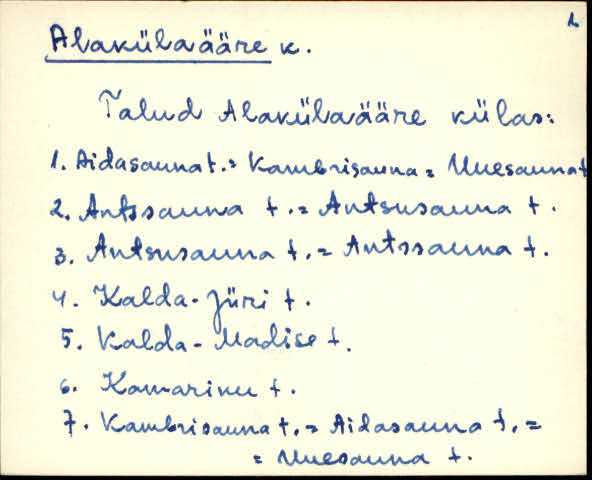 1.
Alaküla ääre k.
Talud Alakülaääre külas:
1. Aidasauna t. = Kambrisauna = Uuesauna t
2. Antssauna t. = Antsusauna t.
3. Antsusauna t. = Antssauna t.
4. Kalda-Jüri t.
5. Kalda-Madise t.
6. Kamarinu t.
7. Kambrisauna t. = Aidasauna t. =
= Uuesauna t.